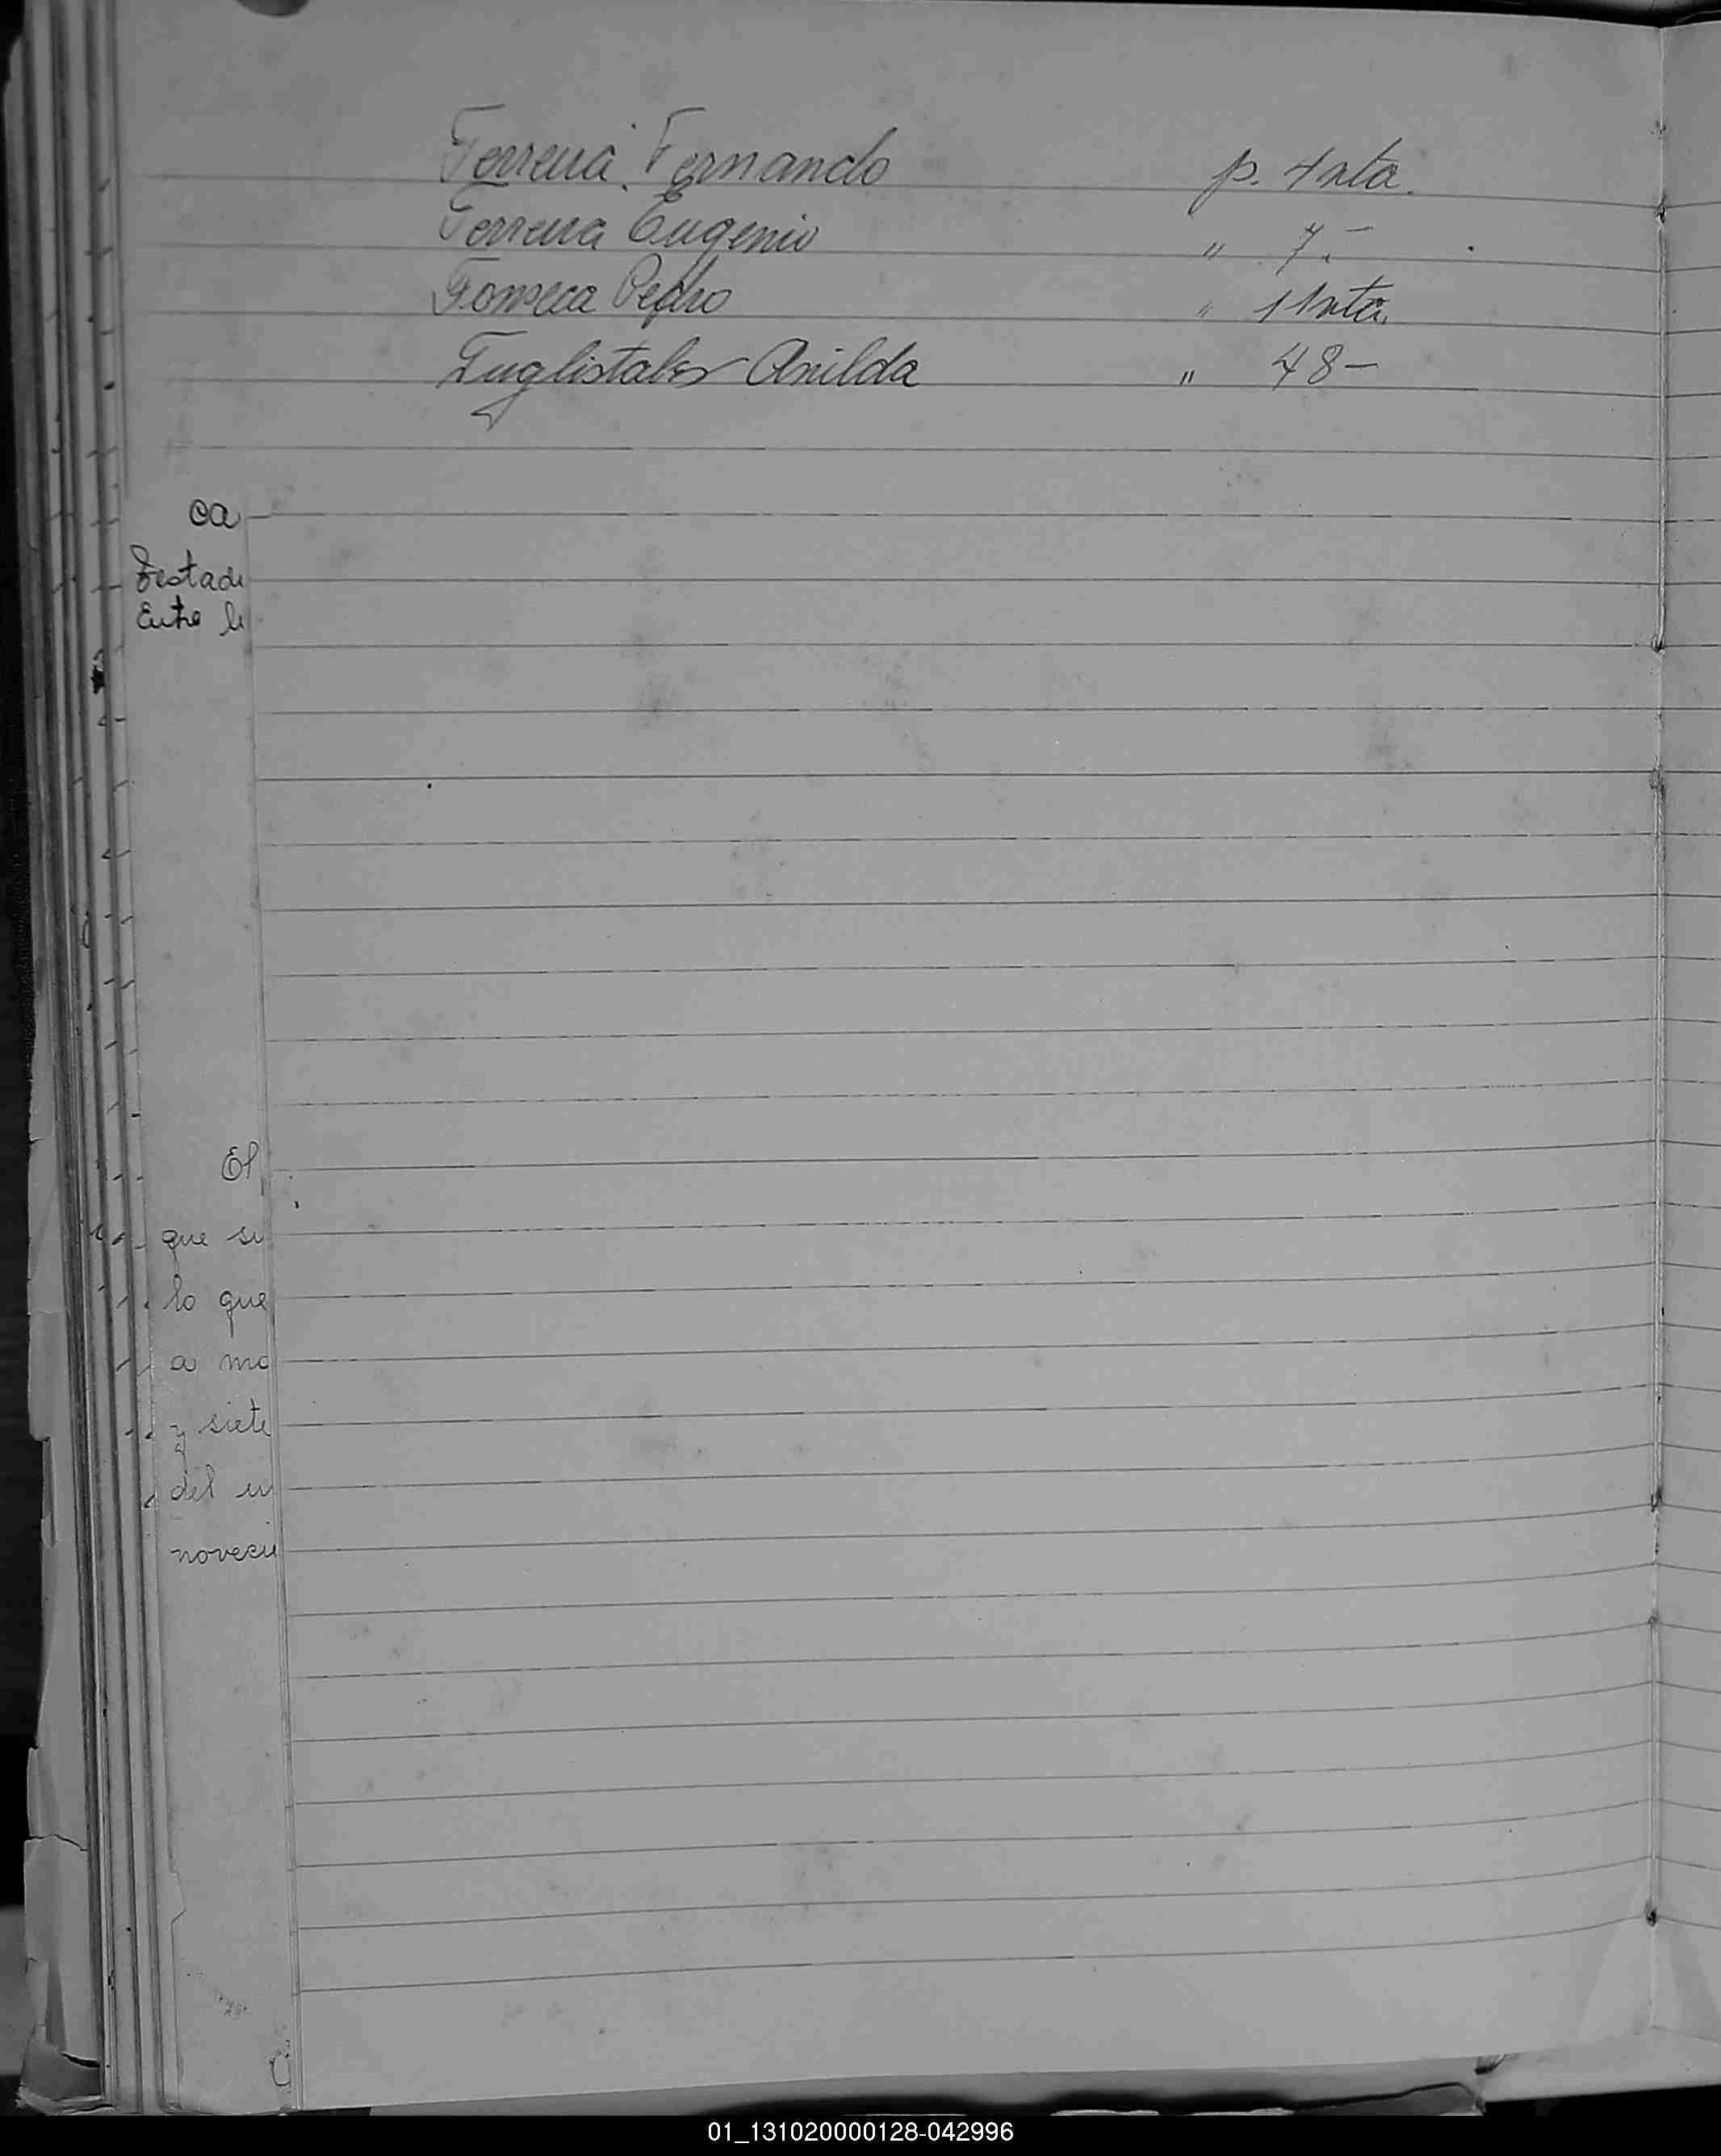 Ferreira Fernando p. 4 vta.
Ferreira Eugenio " 7-
Fonseca Pedro " 11 vta.
Anilda " 48-
ca
Testad
Entre l
El
que su
lo que
a mo
y siete
del
noveci
01_131020000128-042996